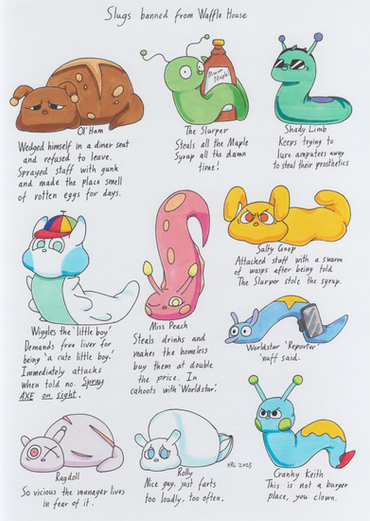 Slugs banned from Waffle House
Ol' Ham
Wedged himself in a diner seat
and refused to leave.
Sprayed staff with gunk
and made the place smell
of rotten eggs for days.
The Slurper
Steals all the Maple
Syrup all the damn
time!
Shady Limb
Keeps trying to
lure amputees away
to steal their prosthetics
Wiggles the 'little boy'
Demands free liver for
being 'a cute little boy.'
Immediately attacks
when told no. Spray
AXE on sight.
Miss Peach
Steals drinks and
makes the homeless
buy them at double
the price. In
cahoots with 'Worldstar'.
Salty Goop
Attacked staff with a swarm
of wasps after being told
The Slurper stole the syrup.
Worldstar 'Reporter'
'nuff said.
Ragdoll
So vicious the manager lives
in fear of it.
Rolly
Nice guy, just farts
too loudly, too often.
HRL 2025
Cranky Keith
This is not a burger
place, you clown.